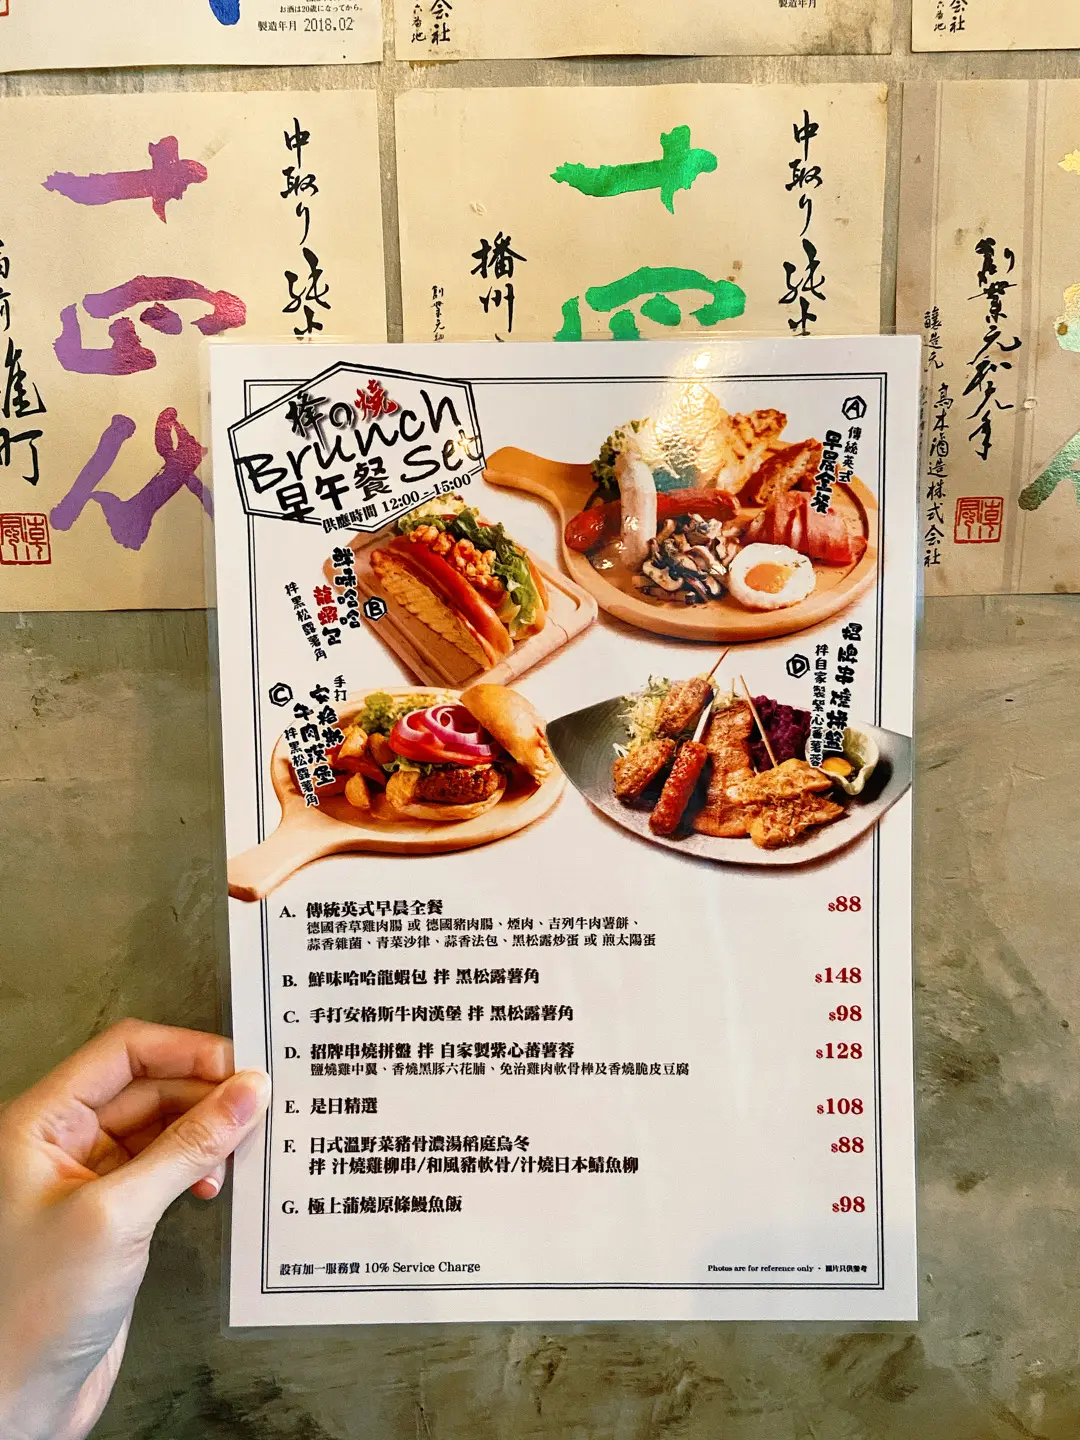 お酒は20歳になってから。
製造年月 2018.02
会社
六番地
製造年月
会社
中取り純米
十四代
中取り純米
播州
十四
創業元和元年
醸造元 高木酒造株式会社
の燒
Brunch
早午餐 Set
供應時間 12:00-15:00
A
傳統英式
早晨全餐
鮮味哈哈
龍蝦包
拌黑松露薯角
B
C
手打
安格斯
牛肉漢堡
拌黑松露薯角
招牌串燒拼盤
拌自家製紫心蕃薯蓉
D
A. 傳統英式早晨全餐 $88
德國香草雞肉腸 或 德國豬肉腸、煙肉、吉列牛肉薯餅、
蒜香雜菌、青菜沙律、蒜香法包、黑松露炒蛋 或 煎太陽蛋
B. 鮮味哈哈龍蝦包 拌 黑松露薯角 $148
C. 手打安格斯牛肉漢堡 拌 黑松露薯角 $98
D. 招牌串燒拼盤 拌 自家製紫心蕃薯蓉 $128
鹽燒雞中翼、香燒黑豚六花腩、免治雞肉軟骨棒及香燒脆皮豆腐
E. 是日精選 $108
F. 日式溫野菜豬骨濃湯稻庭烏冬 $88
拌 汁燒雞柳串/和風豬軟骨/汁燒日本鯖魚柳
G. 極上蒲燒原條鰻魚飯 $98
設有加一服務費 10% Service Charge
Photos are for reference only · 圖片只供參考